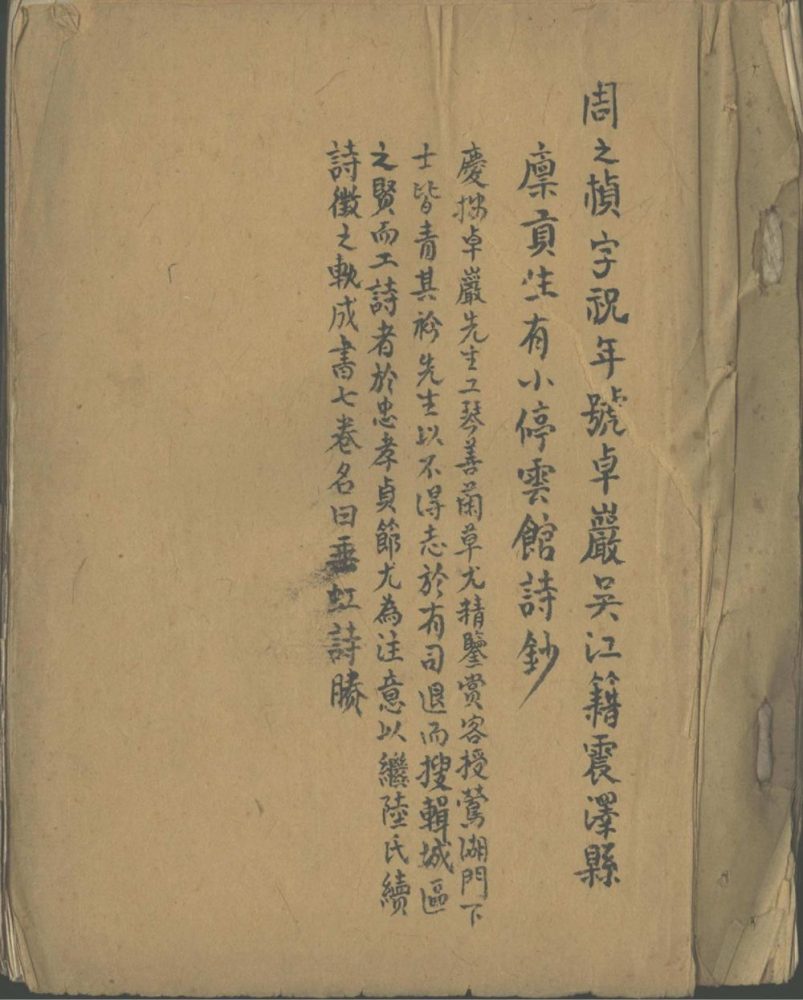 周之楨字祝年號卓巖吳江籍震澤縣
廩貢生有小停雲館詩鈔
慶拙卓巖先生工琴善蘭草尤精鑒賞客授鶯湖門下
士皆青其衿先生以不得志於有司退而搜輯城區
之賢而工詩者於忠孝貞節尤為注意以繼陸氏續
詩徵之軼成書七卷名曰垂虹詩賸